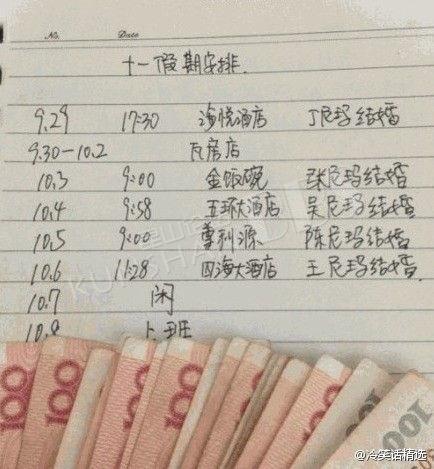 No.
Date
十一假期安排.
9.29 17:30 海悦酒店 丁尼玛结婚
9.30-10.2 瓦房店
10.3 9:00 金饭碗 张尼玛结婚
10.4 9:58 五环大酒店 吴尼玛结婚
10.5 9:00 尊利源 陈尼玛结婚
10.6 11:28 四海大酒店 王尼玛结婚.
10.7 闲
10.8 上班
100 100 100 100 100 100
@冷笑话精选